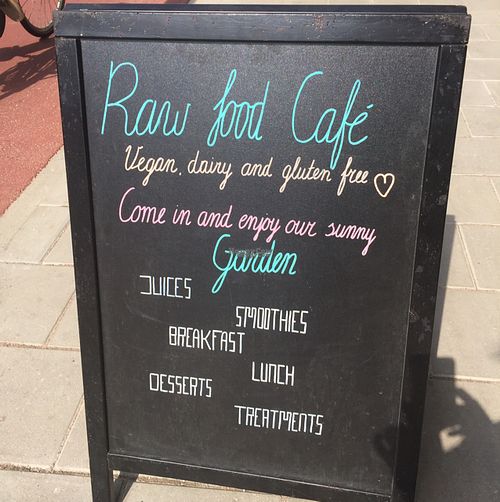 Raw food Café
Vegan, dairy and gluten free
Come in and enjoy our sunny
Garden
JUICES
SMOOTHIES
BREAKFAST
LUNCH
DESSERTS
TREATMENTS